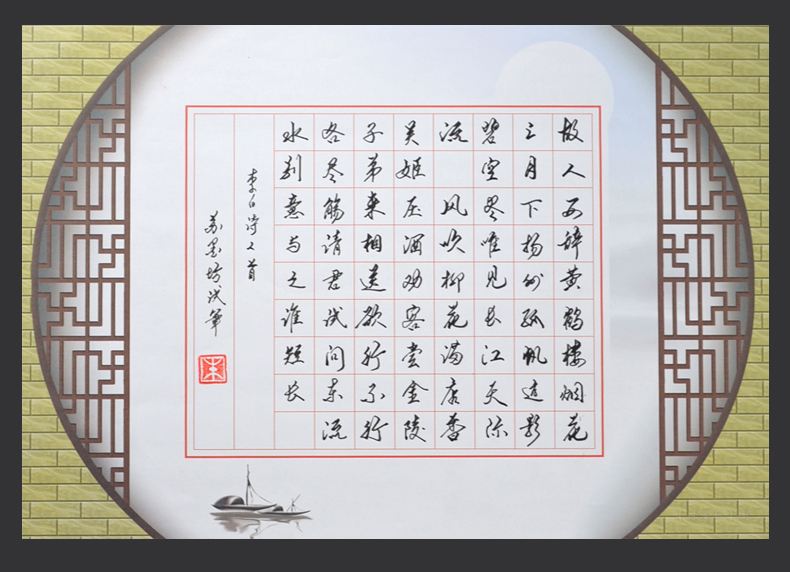 故人西辞黄鹤楼烟花
三月下扬州孤帆远影
碧空尽唯见长江天际
流 风吹柳花满店香
吴姬压酒劝客尝金陵
子弟来相送欲行不行
各尽觞请君试问东流
水别意与之谁短长
李白诗二首
苏墨坊试笔